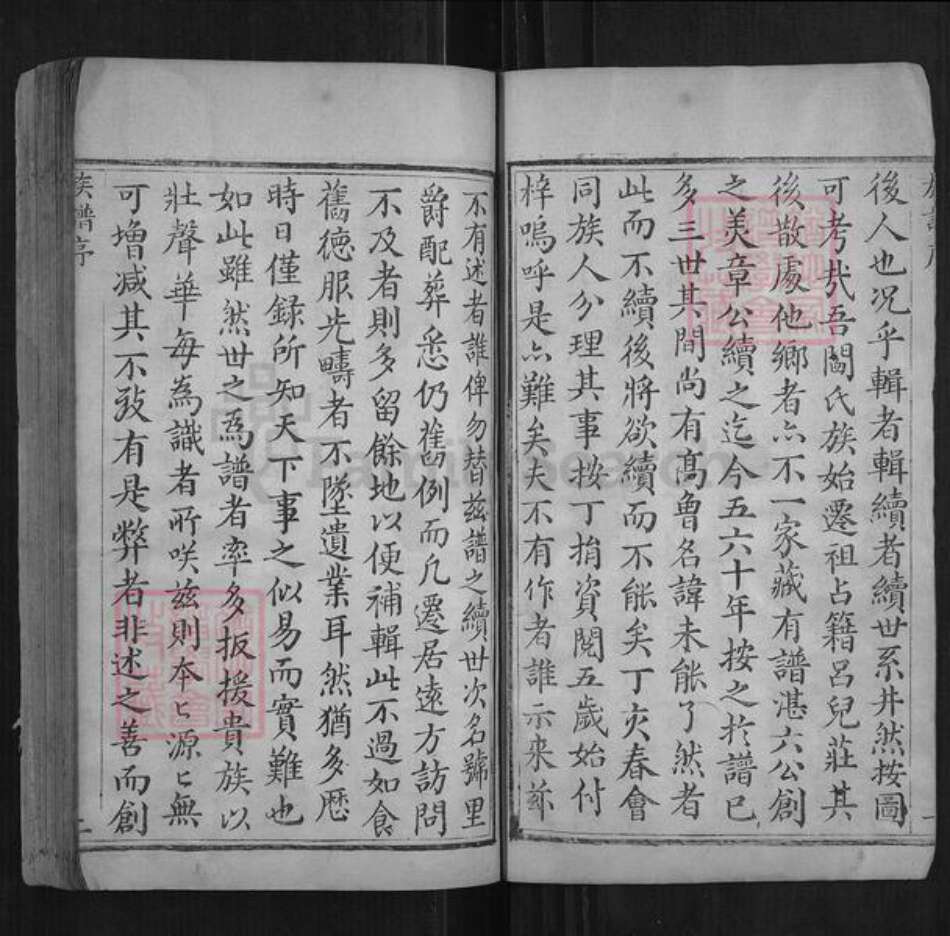 後人也况乎輯者輯續者續世系井然按圖
可考㢤吾閻氏族始遷祖占籍呂兒莊其
後散處他鄉者亦不一家藏有譜湛六公創
之美章公續之迄今五六十年按之於譜已
多三世其間尚有髙曾名諱未能了然者
此而不續後將欲續而不能矣丁亥春會
同族人分理其事按丁捐資閱五歲始付
梓嗚呼是亦難矣夫不有作者誰示来茲
不有述者誰俾勿替茲譜之續世次名號里
爵配葬悉仍舊例而凡遷居遠方訪問
不及者則多留餘地以便補輯此不過如食
舊德服先疇者不墜遺業耳然猶多歷
時日僅録所知天下事之似易而實難也
如此雖然世之爲譜者率多扳援貴族以
壯聲華每爲識者所咲茲則本〻源〻無
可增减其不致有是弊者非述之善而創
族譜序
二
族譜序
一
FamilySearch